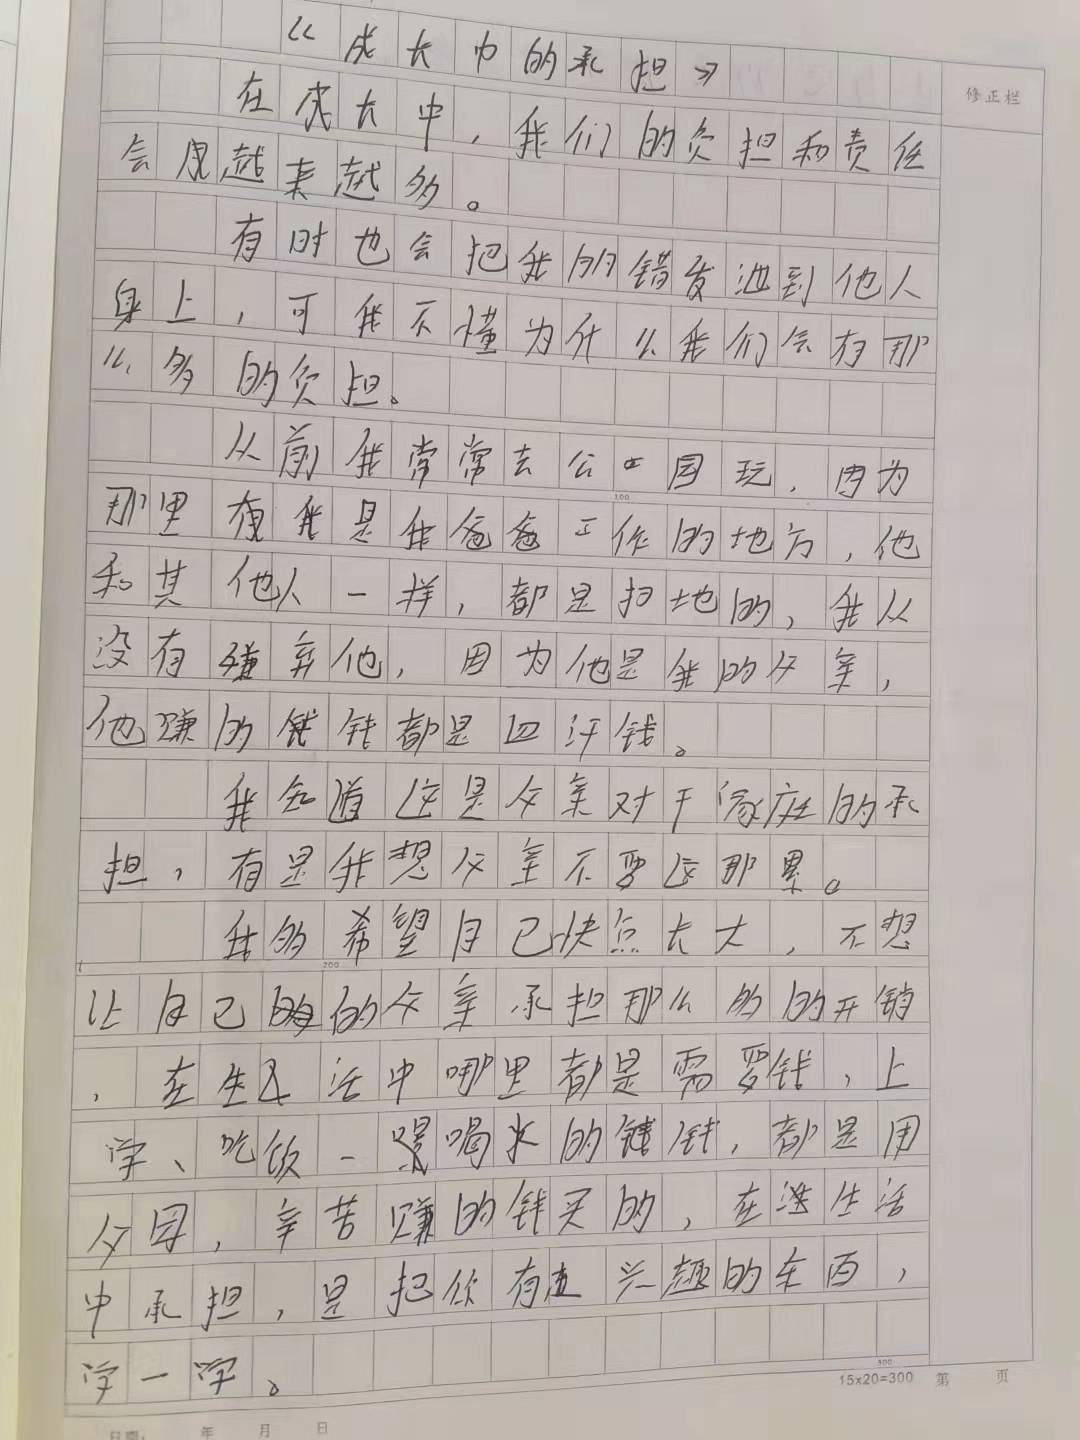 《成长中的承担》
修正栏
在成长中，我们的负担和责任
会成越来越多。
有时也会把我的错发泄到他人
身上，可我不懂为什么我们会有那
么多的负担。
从前我常常去公园玩，因为
那里我是我爸爸工作的地方，他
和其他人一样，都是扫地的，我从
没有嫌弃他，因为他是我的父亲，
他赚的钱钱都是血汗钱。
我知道这是父亲对于家庭的承
担，有是我想父亲不要这那累。
我的希望自己快点长大，不想
让自己的父亲承担那么多的开销
，在生活中哪里都是需要钱，上
学、吃饭、喝水的钱，都是用
父母，辛苦赚的钱买的，在生活
中承担，是把你有兴趣的东西，
学一学。
15x20=300 第 页
日期： 年 月 日